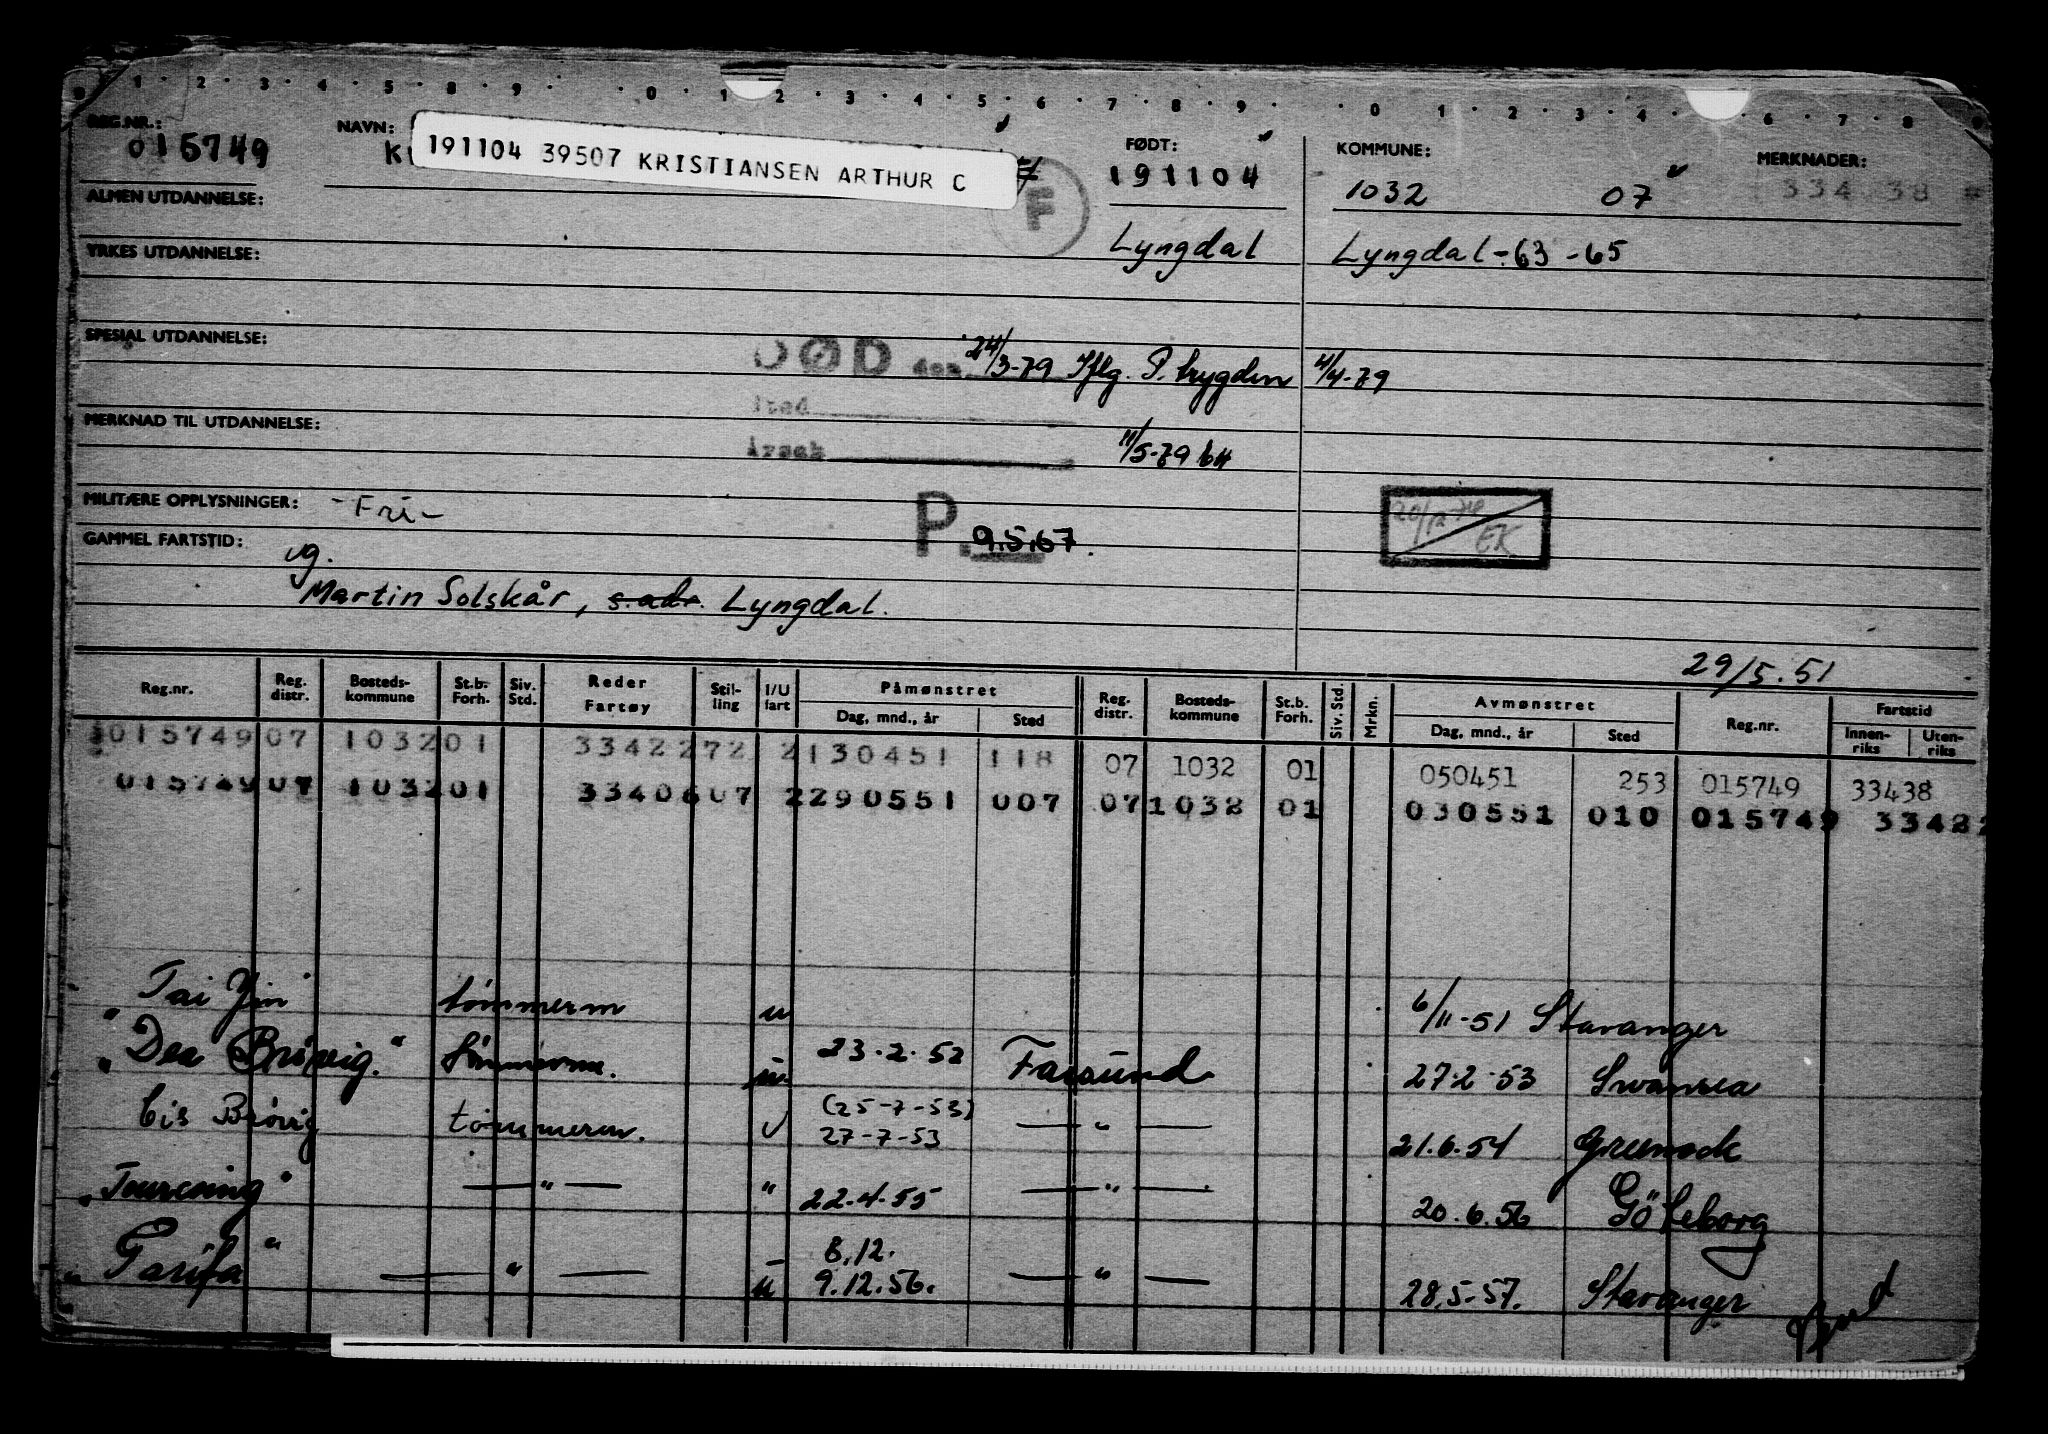 0 · 1 · 2 · 3 · 4 · 5 · 8 · 9 · · 0 · 1 · 2 · 3 · 4 · 5 · 6 · 7 · 8 · 9 · · 0 · 1 · 2 · 3 · 4 · 6 · 7 · 8 · 9
REG.NR.: NAVN: FØDT: KOMMUNE: MERKNADER:
015749 191104 39507 KRISTIANSEN ARTHUR C 191104 1032 07 334 38
F
ALMEN UTDANNELSE:
Lyngdal Lyngdal - 63 - 65
YRKES UTDANNELSE:
SPESIAL UTDANNELSE:
DØD den 24/3-79 Iflg. P. trygden 4/4-79
Sted
MERKNAD TIL UTDANNELSE:
Årsak 11/5-79
MILITÆRE OPPLYSNINGER: - Fri - P. 9.5.67. 20/12 74 EK
GAMMEL FARTSTID:
vg.
Martin Solskår, s.adr. Lyngdal.
29/5.51
Reg.nr. Reg. distr. Bosteds-kommune St.b. Forh. Siv. Std. Reder Fartøy Stil-ling I/U fart Påmønstret Dag, mnd., år Sted Reg. distr. Bosteds-kommune St.b. Forh. Siv. Std. Mrkn. Avmønstret Dag, mnd., år Sted Reg.nr. Fartstid Innen-riks Uten-riks
015749 07 1032 01 3342272 2 130451 118 07 1032 01 050451 253 015749 33438
015749 07 1032 01 3340607 2 290551 007 07 1032 01 030551 010 015749 33422
"Tai Yin" tømmerm u 6/11-51 Stavanger
"Dea Brøvig." tømmerm. u. 23.2.52 Farsund 27.2.53 Swansea
Cis Brøvig tømmerm. U (25-7-53) 27-7-53 — " — 21.6.54 Greenock
— " — " 22.4.55 — " — 20.6.56 Göteborg
"Tarifa" — " — u 8.12. 9.12.56. — " — 28.5-57. Stavanger